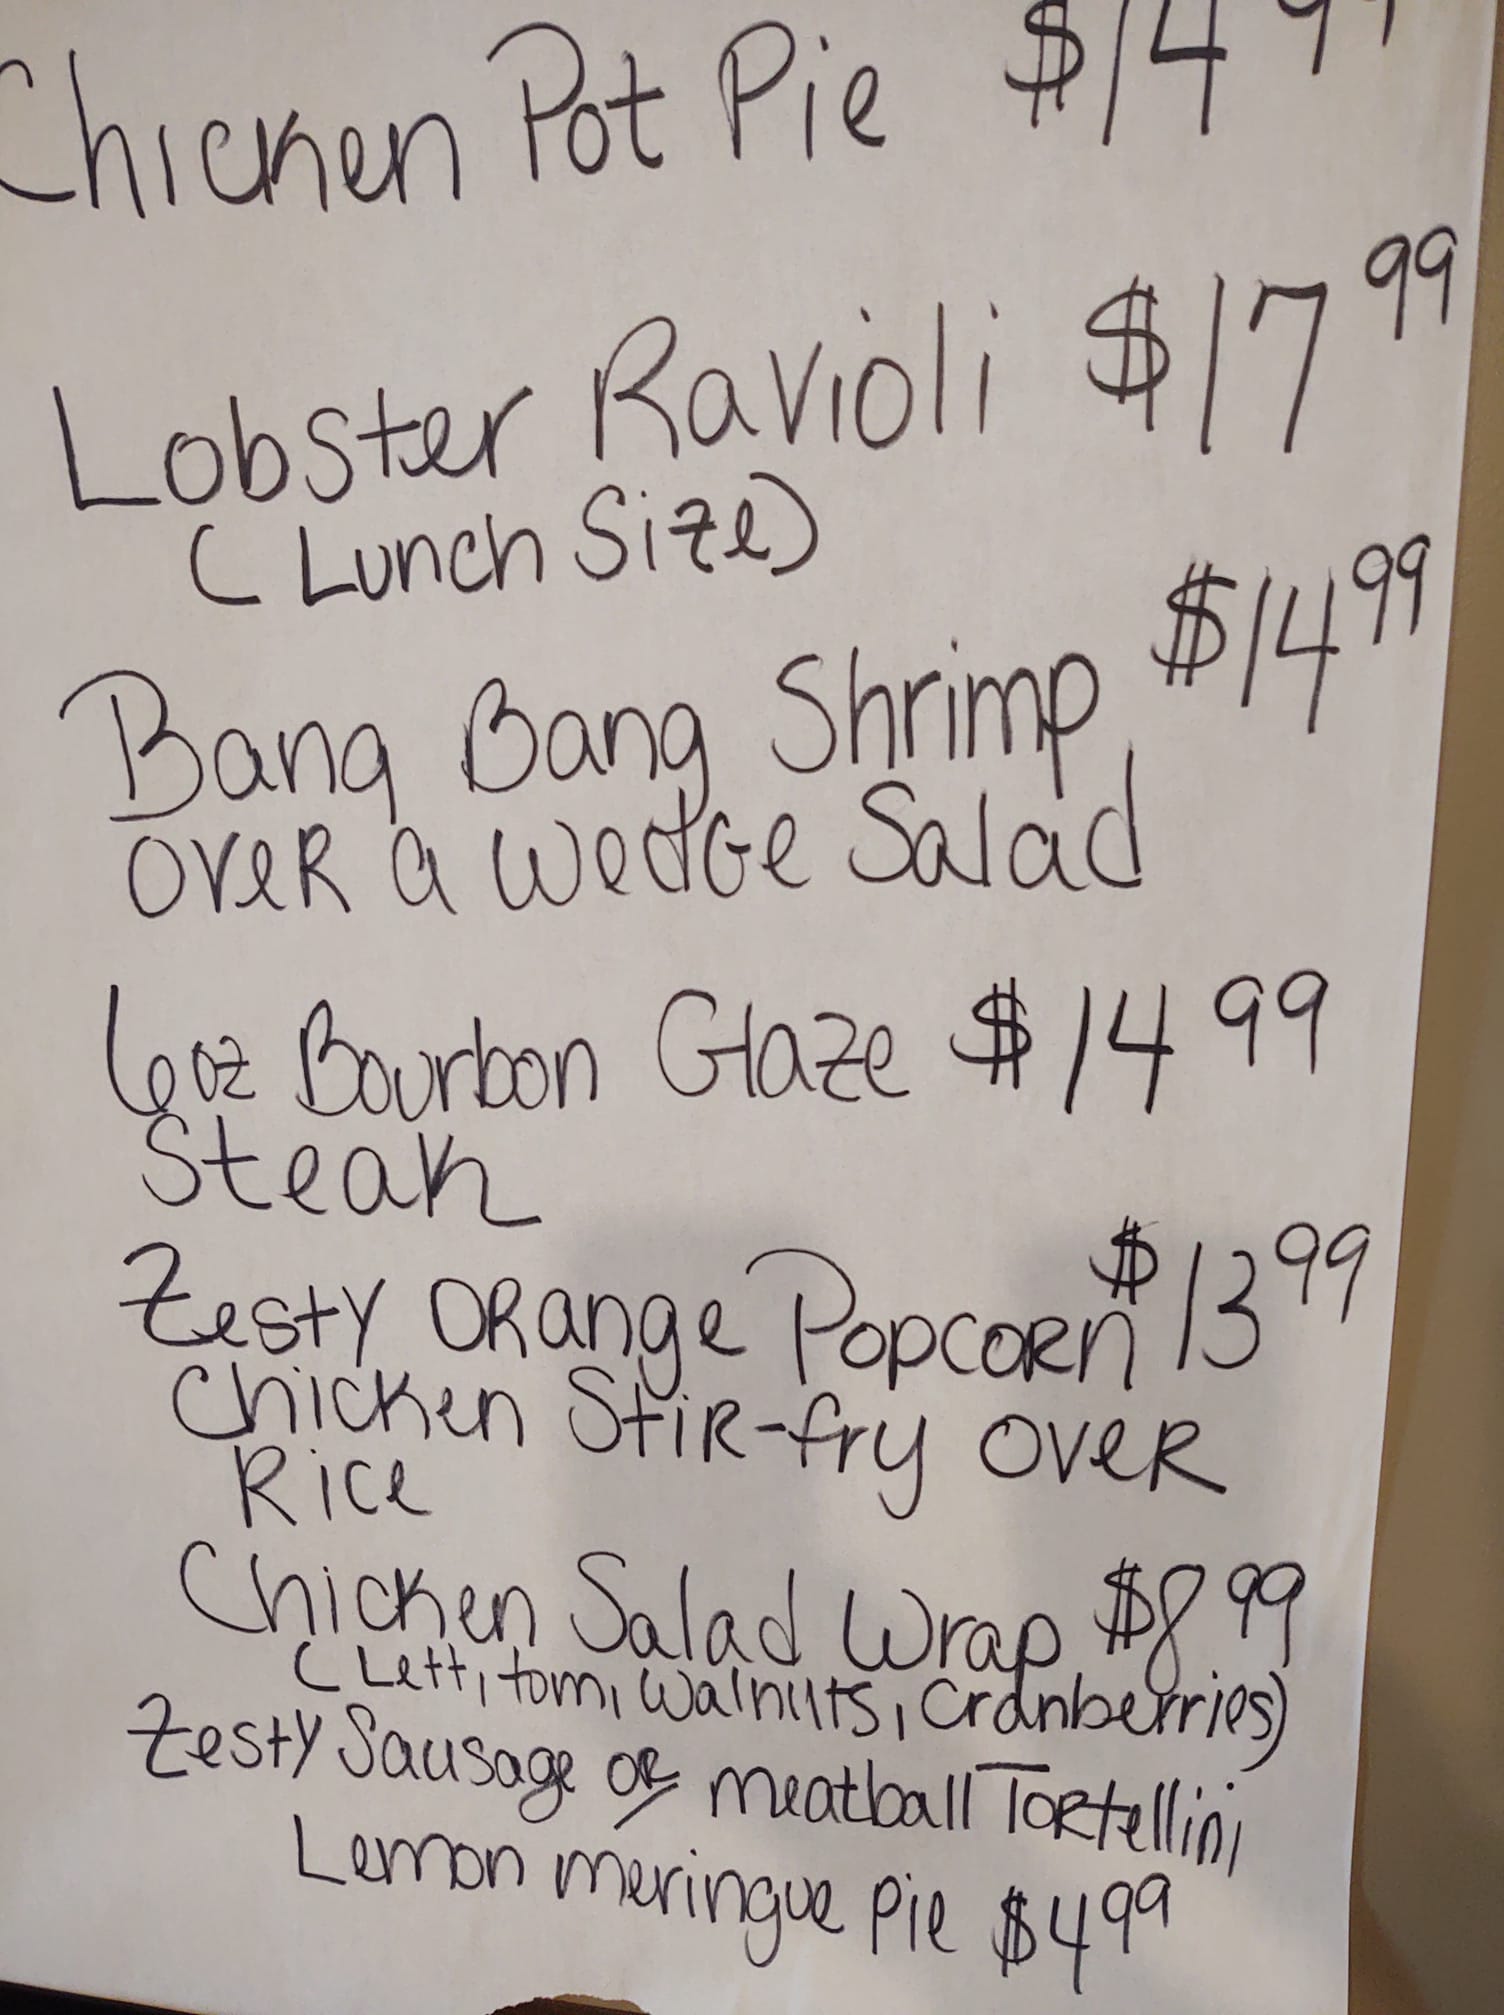 Chicken Pot Pie $14 99
Lobster Ravioli $17 99
(Lunch Size)
Bang Bang Shrimp $14 99
over a wedge Salad
6oz Bourbon Glaze $14 99
Steak
Zesty Orange Popcorn $13 99
Chicken Stir-fry over
Rice
Chicken Salad Wrap $8 99
(Lett, tom, walnuts, cranberries)
Zesty Sausage or meatball Tortellini
Lemon meringue pie $4 99